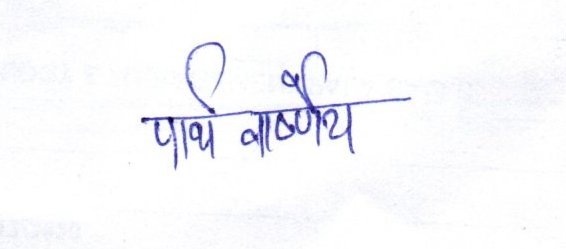 पार्थ वार्ष्णेय